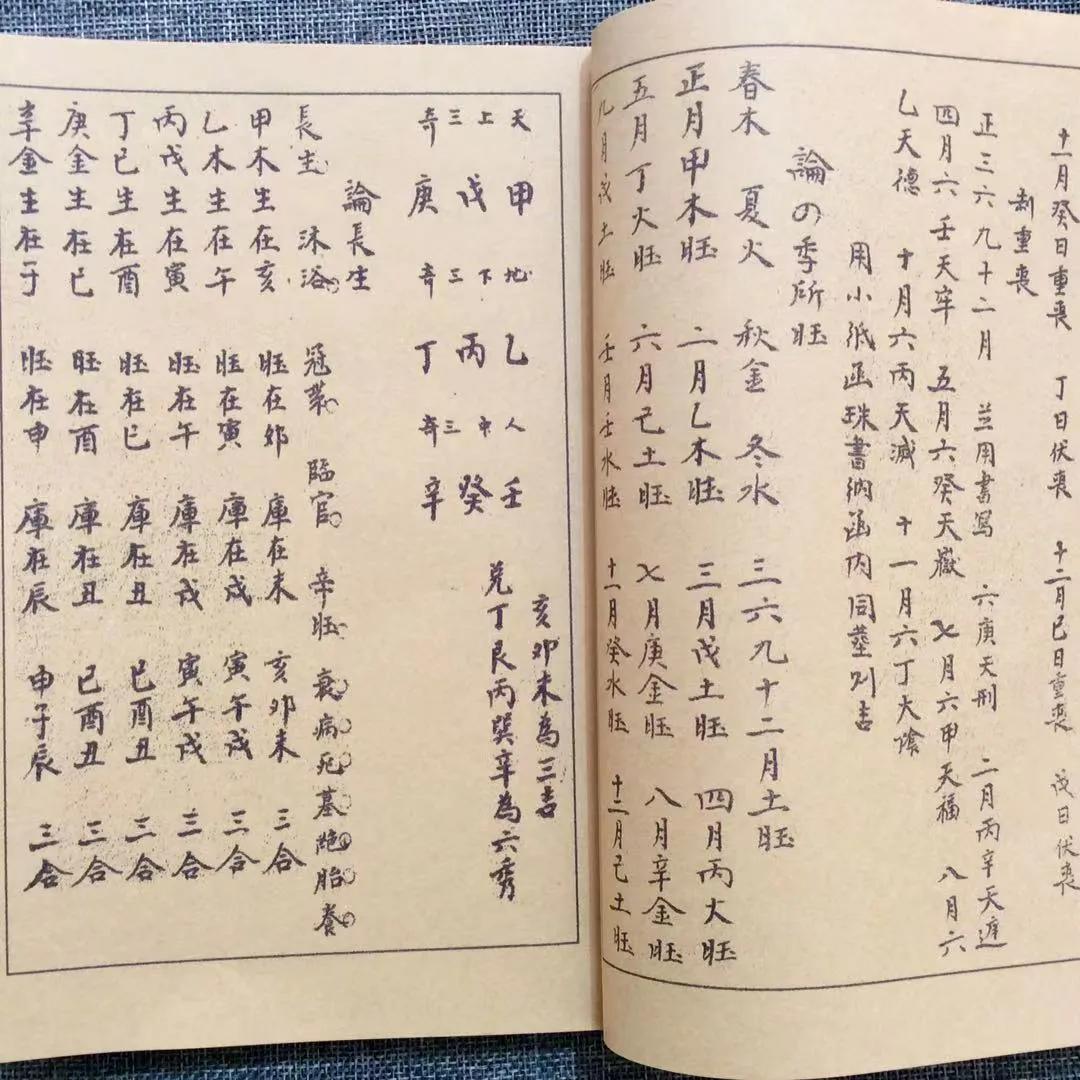 十一月癸日重喪 丁日伏喪 十二月已日重喪 戊日伏喪
制重喪
正三六九十二月 兰用書写 六庚天刑 二月丙辛天遅
四月六壬天牢 五月六癸天嶽 七月六甲天福 八月六
乙天德 十月六丙天滅 十一月六丁大陰
用小紙函珠書納函内同塟則吉
論の季所旺
春木 夏火 秋金 冬水 三六九十二月土旺
正月甲木旺 二月乙木旺 三月戊土旺 四月丙火旺
五月丁火旺 六月己土旺 七月庚金旺 八月辛金旺
九月戊土旺 壬月壬水旺 十一月癸水旺 十二月己土旺
亥卯未為三吉
兑丁艮丙巽辛為六秀
天上三奇 甲戊庚 地下三奇 乙丙丁 人中三奇 壬癸辛
論長生
長生 沐浴 冠帶 臨官 帝旺 衰 病 死 墓 絶 胎 養
甲木生在亥 旺在卯 庫在未 亥卯未 三合
乙木生在午 旺在寅 庫在戌 寅午戌 三合
丙戊生在寅 旺在午 庫在戌 寅午戌 三合
丁已生在酉 旺在巳 庫在丑 巳酉丑 三合
庚金生在巳 旺在酉 庫在丑 巳酉丑 三合
辛金生在子 旺在申 庫在辰 申子辰 三合